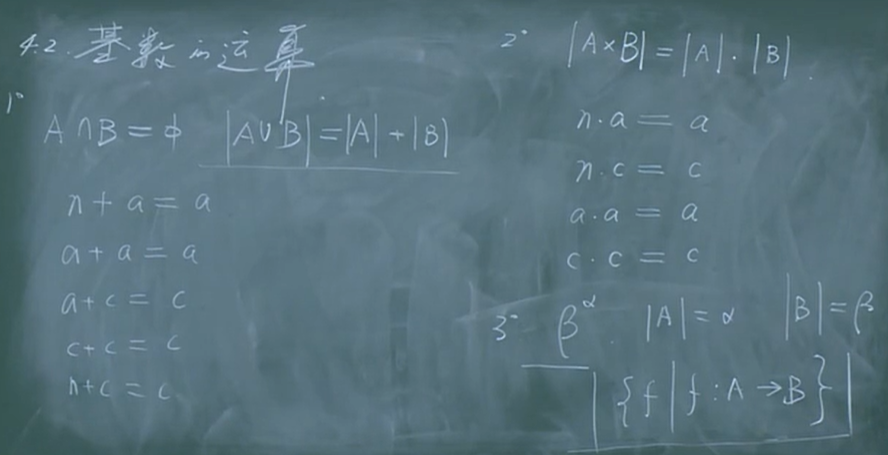 4.2. 基数的运算
1°
A∩B=ϕ |A∪B|=|A|+|B|
n+a=a
a+a=a
a+c=c
c+c=c
n+c=c
2° |A×B|=|A|·|B|.
n·a=a
n·c=c
a·a=a
c·c=c
3° β^α. |A|=α |B|=β
|{f|f:A→B}|